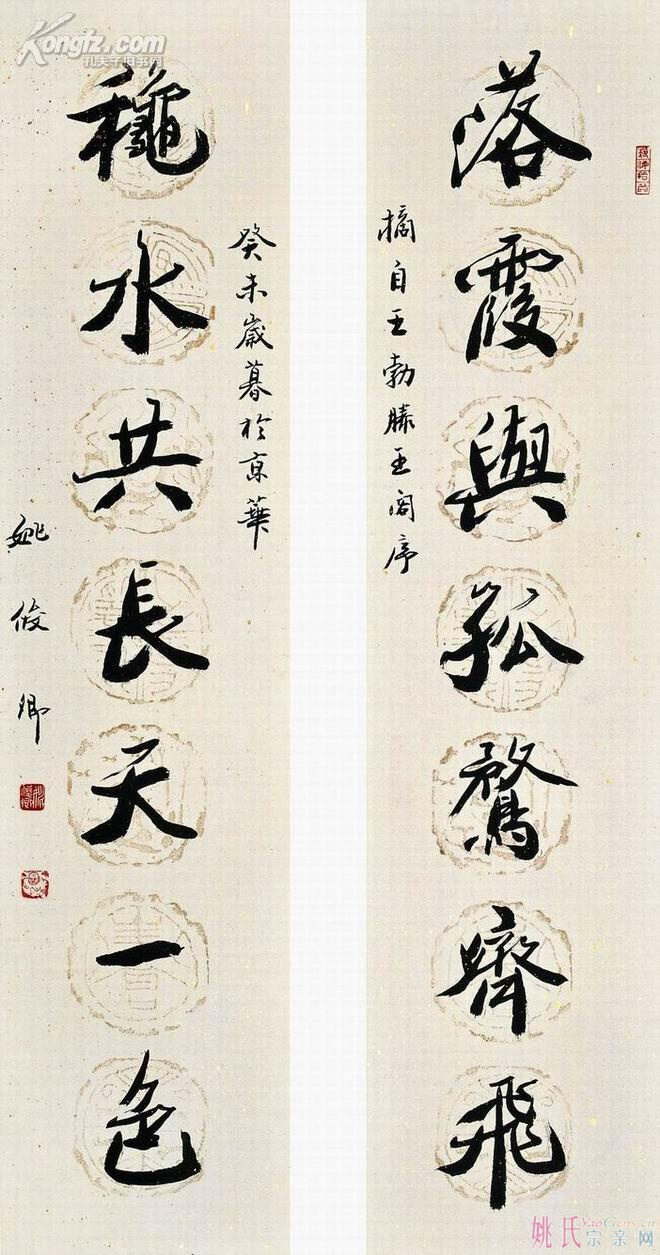 落霞與孤鶩齊飛
摘自王勃滕王阁序
癸未歲暮於京華
穐水共長天一色
姚俊卿
Kongfz.com
孔夫子旧书网
姚氏宗亲网